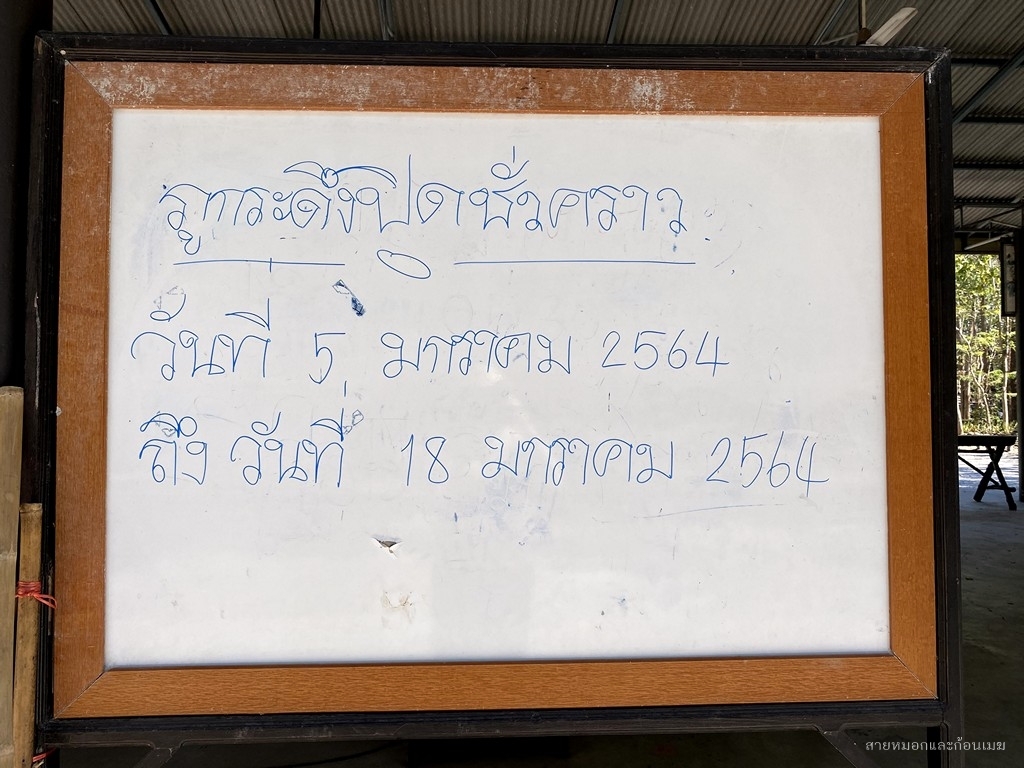 ภูกระดึงปิดชั่วคราว
วันที่ 5 มกราคม 2564
ถึง วันที่ 18 มกราคม 2564
สายหมอกและก้อนเมฆ